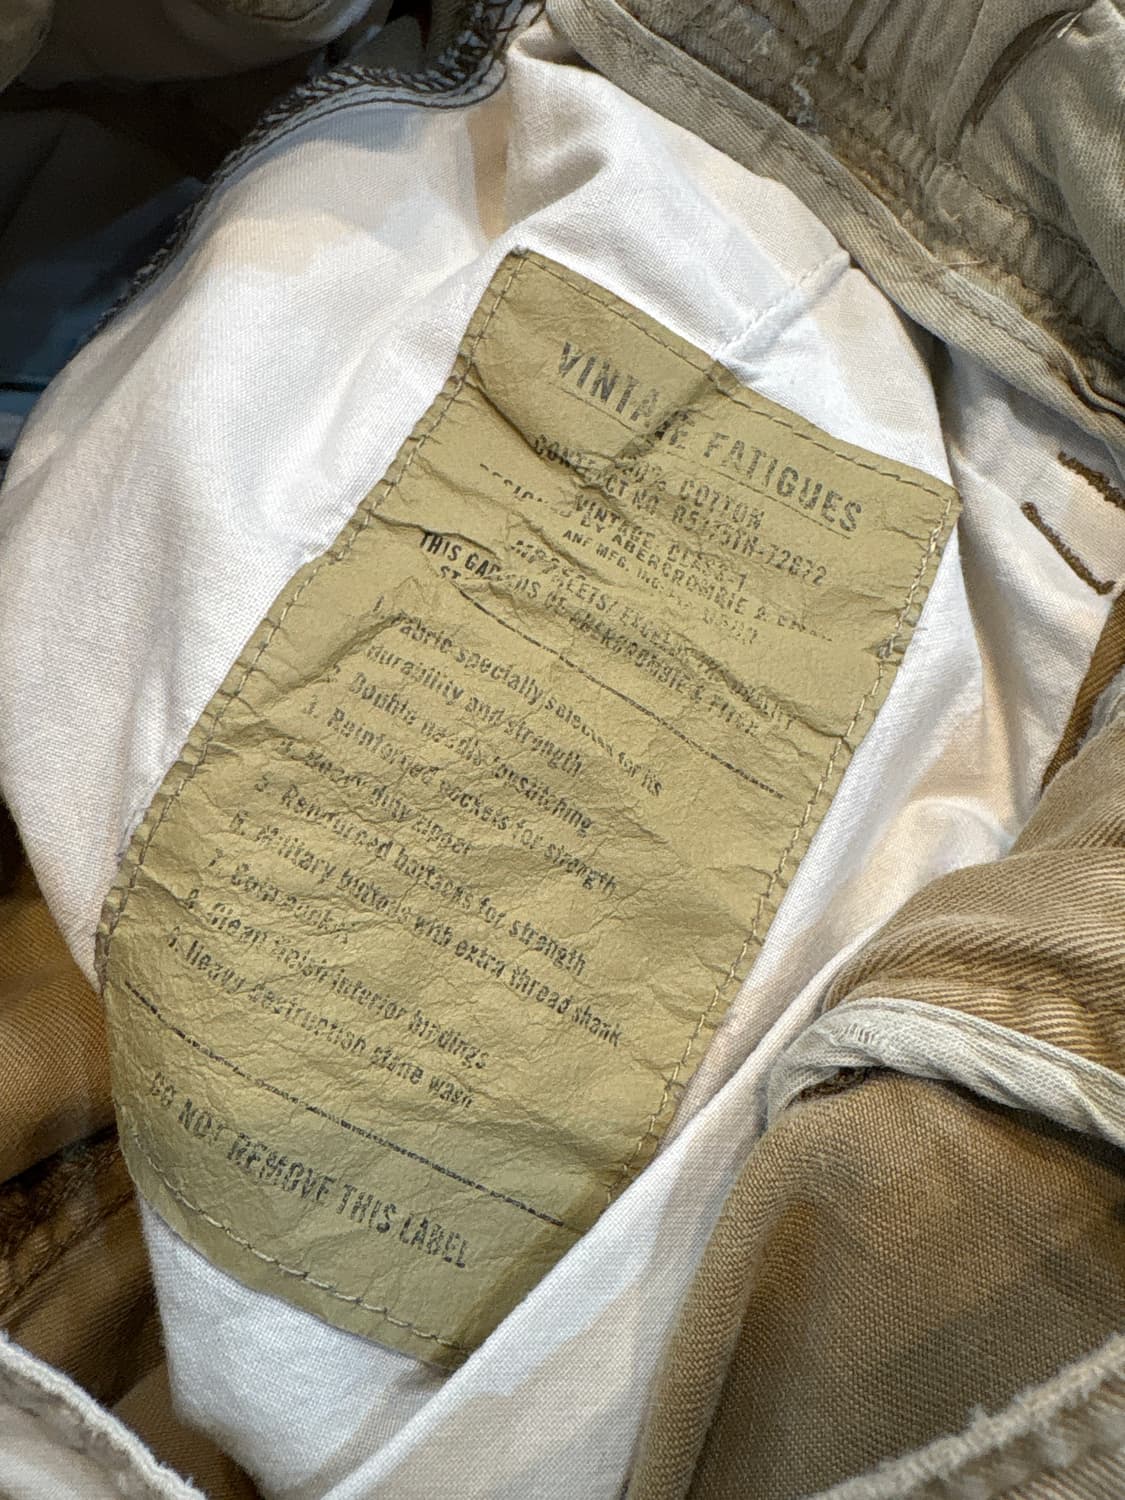 VINTAGE FATIGUES
100% COTTON
CONTRACT NO.
VINTAGE CLASS-1
ABERCROMBIE &
AND MFG. INC.
THIS
ABERCROMBIE & FITCH
1. Fabric specially selected for its
durability and strength
2. Double needle topstitching
3. Reinforced pockets for strength
4. Heavy duty zipper
5. Reinforced bartacks for strength
6. Military buttons with extra thread shank
7.
8. Clean finish interior bindings
9. Heavy destruction stone wash
DO NOT REMOVE THIS LABEL